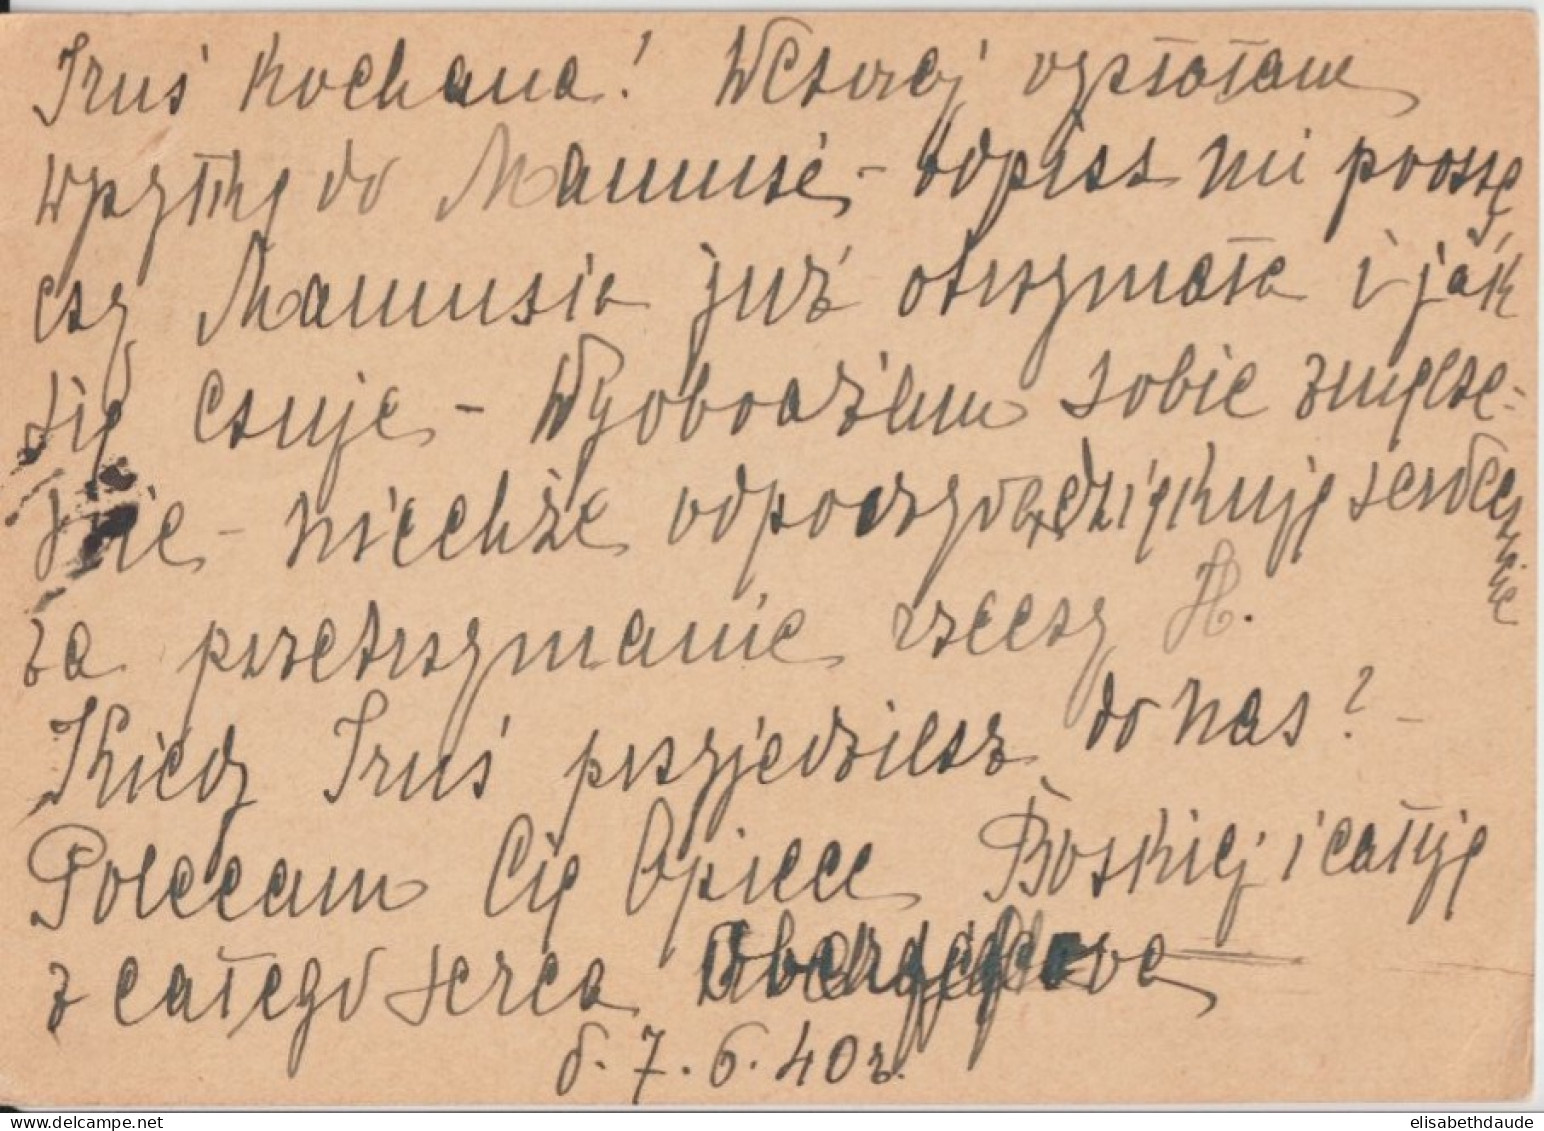 Iruś kochana! Wczoraj wysłałam
wpłatę do Mamusi – odpisz mi proszę
czy Mamusia już otrzymała i jak
się czuje – Wyobrażam sobie zmęcze-
nie – niechże odpoczywa, dziękuję serdecznie
za przetrzymanie rzeczy H.
Kiedy Iruś przyjedziesz do nas? –
Polecam Cię Opiece Boskiej i całuję
z całego serca
d. 7.6.40r.
elisabethdaude